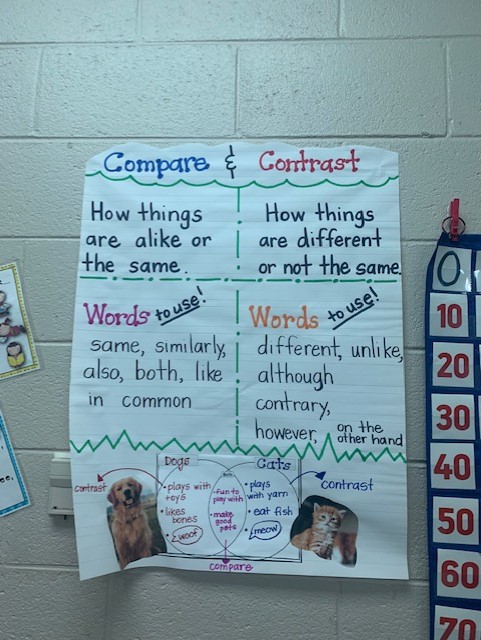 Compare & Contrast
How things
are alike or
the same.
How things
are different
or not the same.
Words to use!
same, similarly,
also, both, like
in common
Words to use!
different, unlike,
although
contrary,
however, on the
other hand
Dogs
Cats
contrast
• plays with
toys
• likes
bones
• woof
Both
• fun to
play with
• make
good
pets
• plays
with yarn
• eat fish
• meow
contrast
compare
0
10
20
30
40
50
60
70